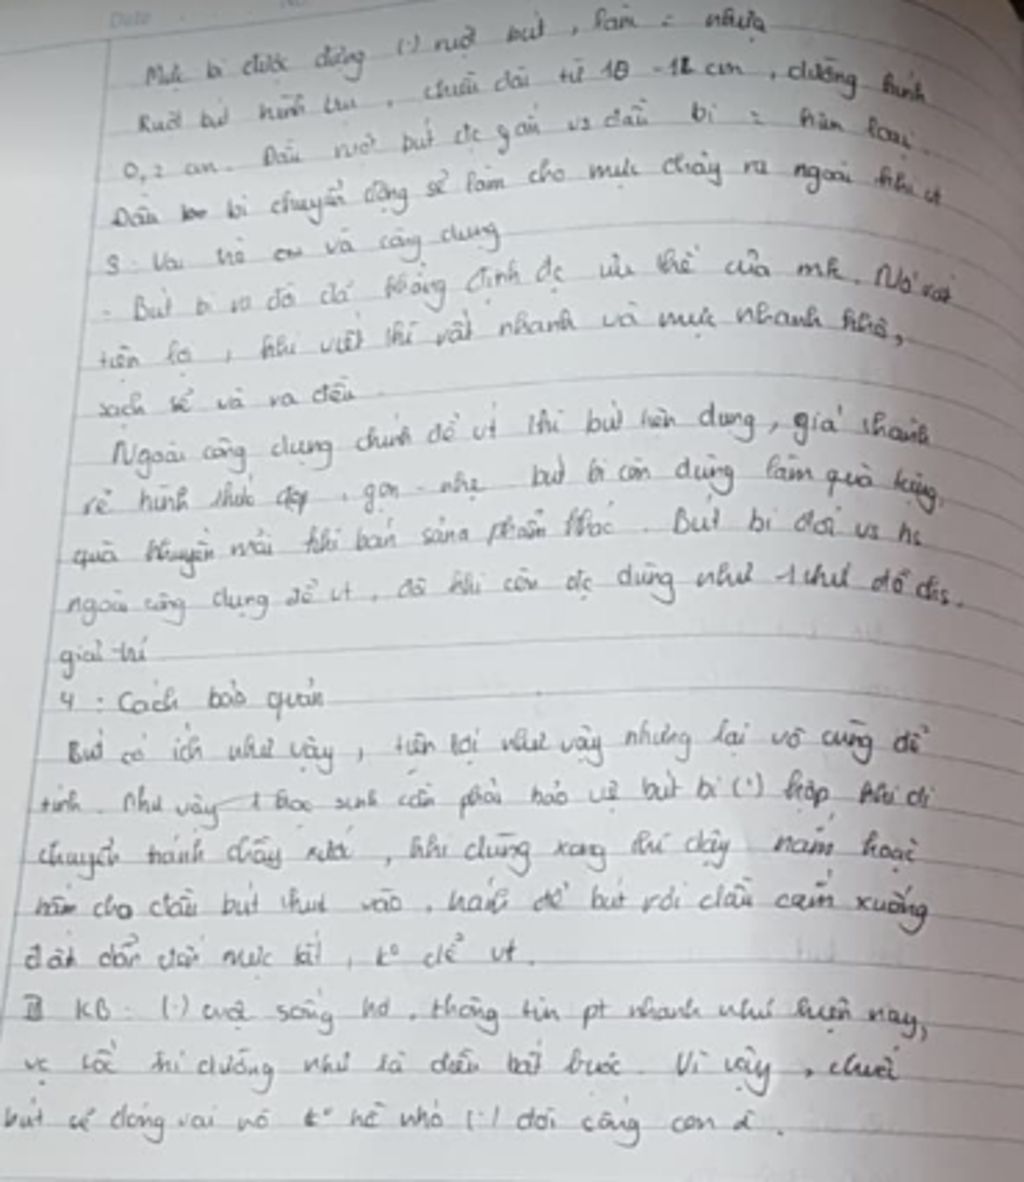 Date
Mực bi được đựng (.) ruột bút, làm = nhựa
Ruột bút hình trụ, chiều dài từ 10 - 12 cm, đường kính
0,2 cm. Đầu ruột bút đc gắn vs đầu bi = kim loại.
Đầu bi chuyển động sẽ làm cho mực chảy ra ngoài khi vt
3. Vai trò và công dụng
- Bút bi ra đời đã khẳng định đc ưu thế của mk. Nó rất
tiện lợi, khi viết thì rất nhanh và mực nhanh khô,
sạch sẽ và ra đều
Ngoài công dụng chính để vt thì bút tiện dụng, giá thành
rẻ hình thức đẹp, gọn nhẹ bút bi còn dùng làm quà tặng,
quà khuyến mãi khi bán sản phẩm khác. Bút bi đối vs hs
ngoài công dụng để vt, đôi khi còn đc dùng như 1 thứ đồ
giải trí
4: Cách bảo quản
Bút có ích như vậy, tiện lợi như vậy nhưng lại vô cùng dễ
tính. Như vậy 1 học sinh cần phải bảo vệ bút bi (.) hộp khi di
chuyển tránh chảy mực, khi dùng xong thì đậy nắp hoặc
bấm cho đầu bút thụt vào, tránh để bút rơi đầu cắm xuống
đất dẫn đến mực tắt, k° để vt.
III KB: (.) cuộc sống hđ, thông tin pt nhanh như hiện nay,
tốc như là điều bắt buộc. Vì vậy, chiếc
bút sẽ đóng vai trò k° hề nhỏ (.) đời sống con